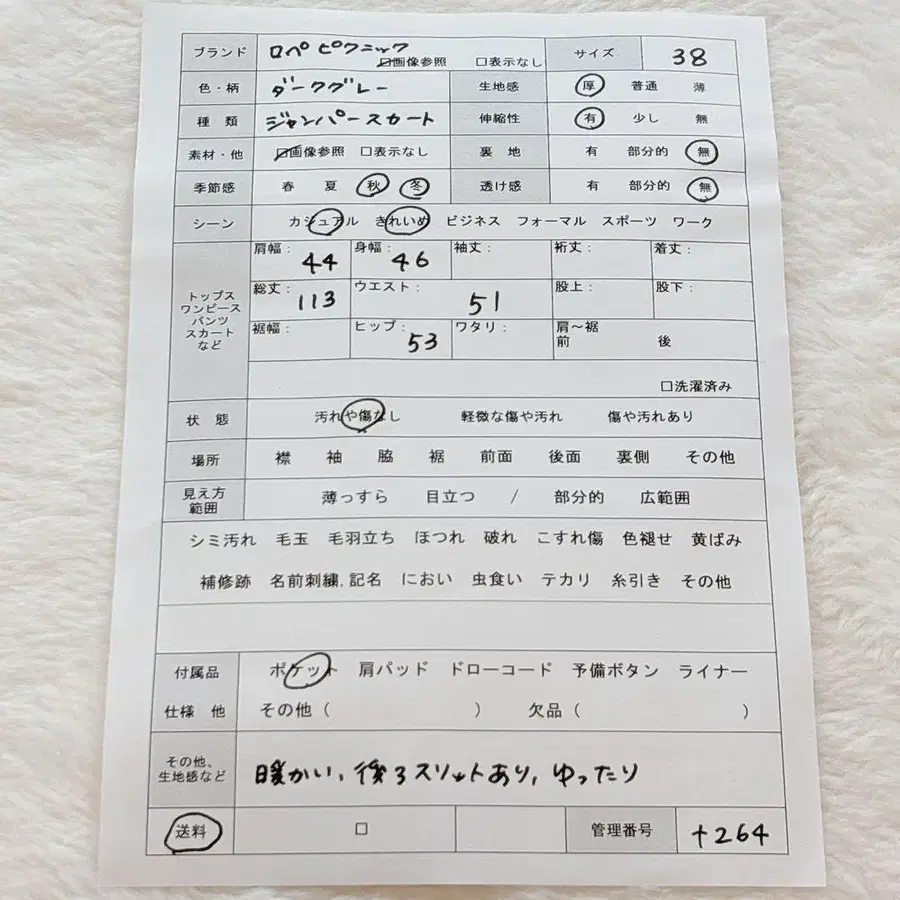 ブランド ロペピクニック サイズ 38
☑画像参照 □表示なし
色・柄 ダークグレー 生地感 厚 普通 薄
種類 ジャンパースカート 伸縮性 有 少し 無
素材・他 ☑画像参照 □表示なし 裏地 有 部分的 無
季節感 春 夏 秋 冬 透け感 有 部分的 無
シーン カジュアル きれいめ ビジネス フォーマル スポーツ ワーク
トップス
ワンピース
パンツ
スカート
など
肩幅: 44 身幅: 46 袖丈: 裄丈: 着丈:
総丈: 113 ウエスト: 51 股上: 股下:
裾幅: ヒップ: 53 ワタリ: 肩〜裾
前 後
□洗濯済み
状態 汚れや傷なし 軽微な傷や汚れ 傷や汚れあり
場所 襟 袖 脇 裾 前面 後面 裏側 その他
見え方
範囲
薄っすら 目立つ / 部分的 広範囲
シミ汚れ 毛玉 毛羽立ち ほつれ 破れ こすれ傷 色褪せ 黄ばみ
補修跡 名前刺繍,記名 におい 虫食い テカリ 糸引き その他
付属品 ポケット 肩パッド ドローコード 予備ボタン ライナー
仕様 他 その他( ) 欠品( )
その他、
生地感など
暖かい、後ろスリットあり、ゆったり
送料 □ 管理番号 +264